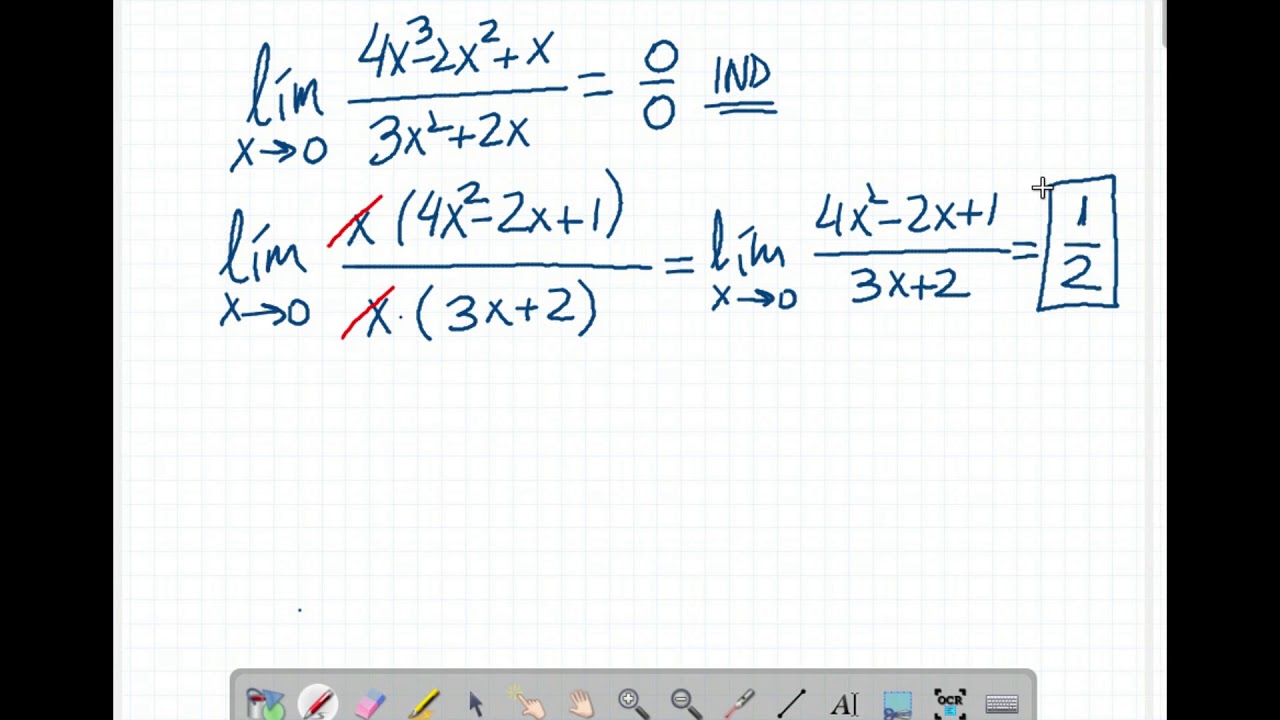 lím x→0 (4x³-2x²+x)/(3x²+2x) = 0/0 IND
lím x→0 x(4x²-2x+1)/x·(3x+2) = lím x→0 (4x²-2x+1)/(3x+2) = 1/2
AI
OCR